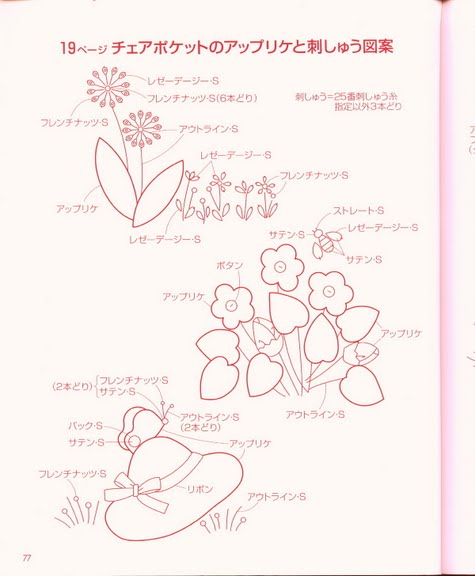 19ページ チェアポケットのアップリケと刺しゅう図案
レゼーデージー・S
フレンチナッツ・S(6本どり)
刺しゅう=25番刺しゅう糸
指定以外3本どり
フレンチナッツ・S
アウトライン・S
レゼーデージー・S
フレンチナッツ・S
アップリケ
ストレート・S
レゼーデージー・S
サテン・S
レゼーデージー・S
サテン・S
ボタン
アップリケ
アップリケ
フレンチナッツ・S
(2本どり)
サテン・S
アウトライン・S
アウトライン・S
(2本どり)
バック・S
サテン・S
アップリケ
フレンチナッツ・S
リボン
アウトライン・S
77